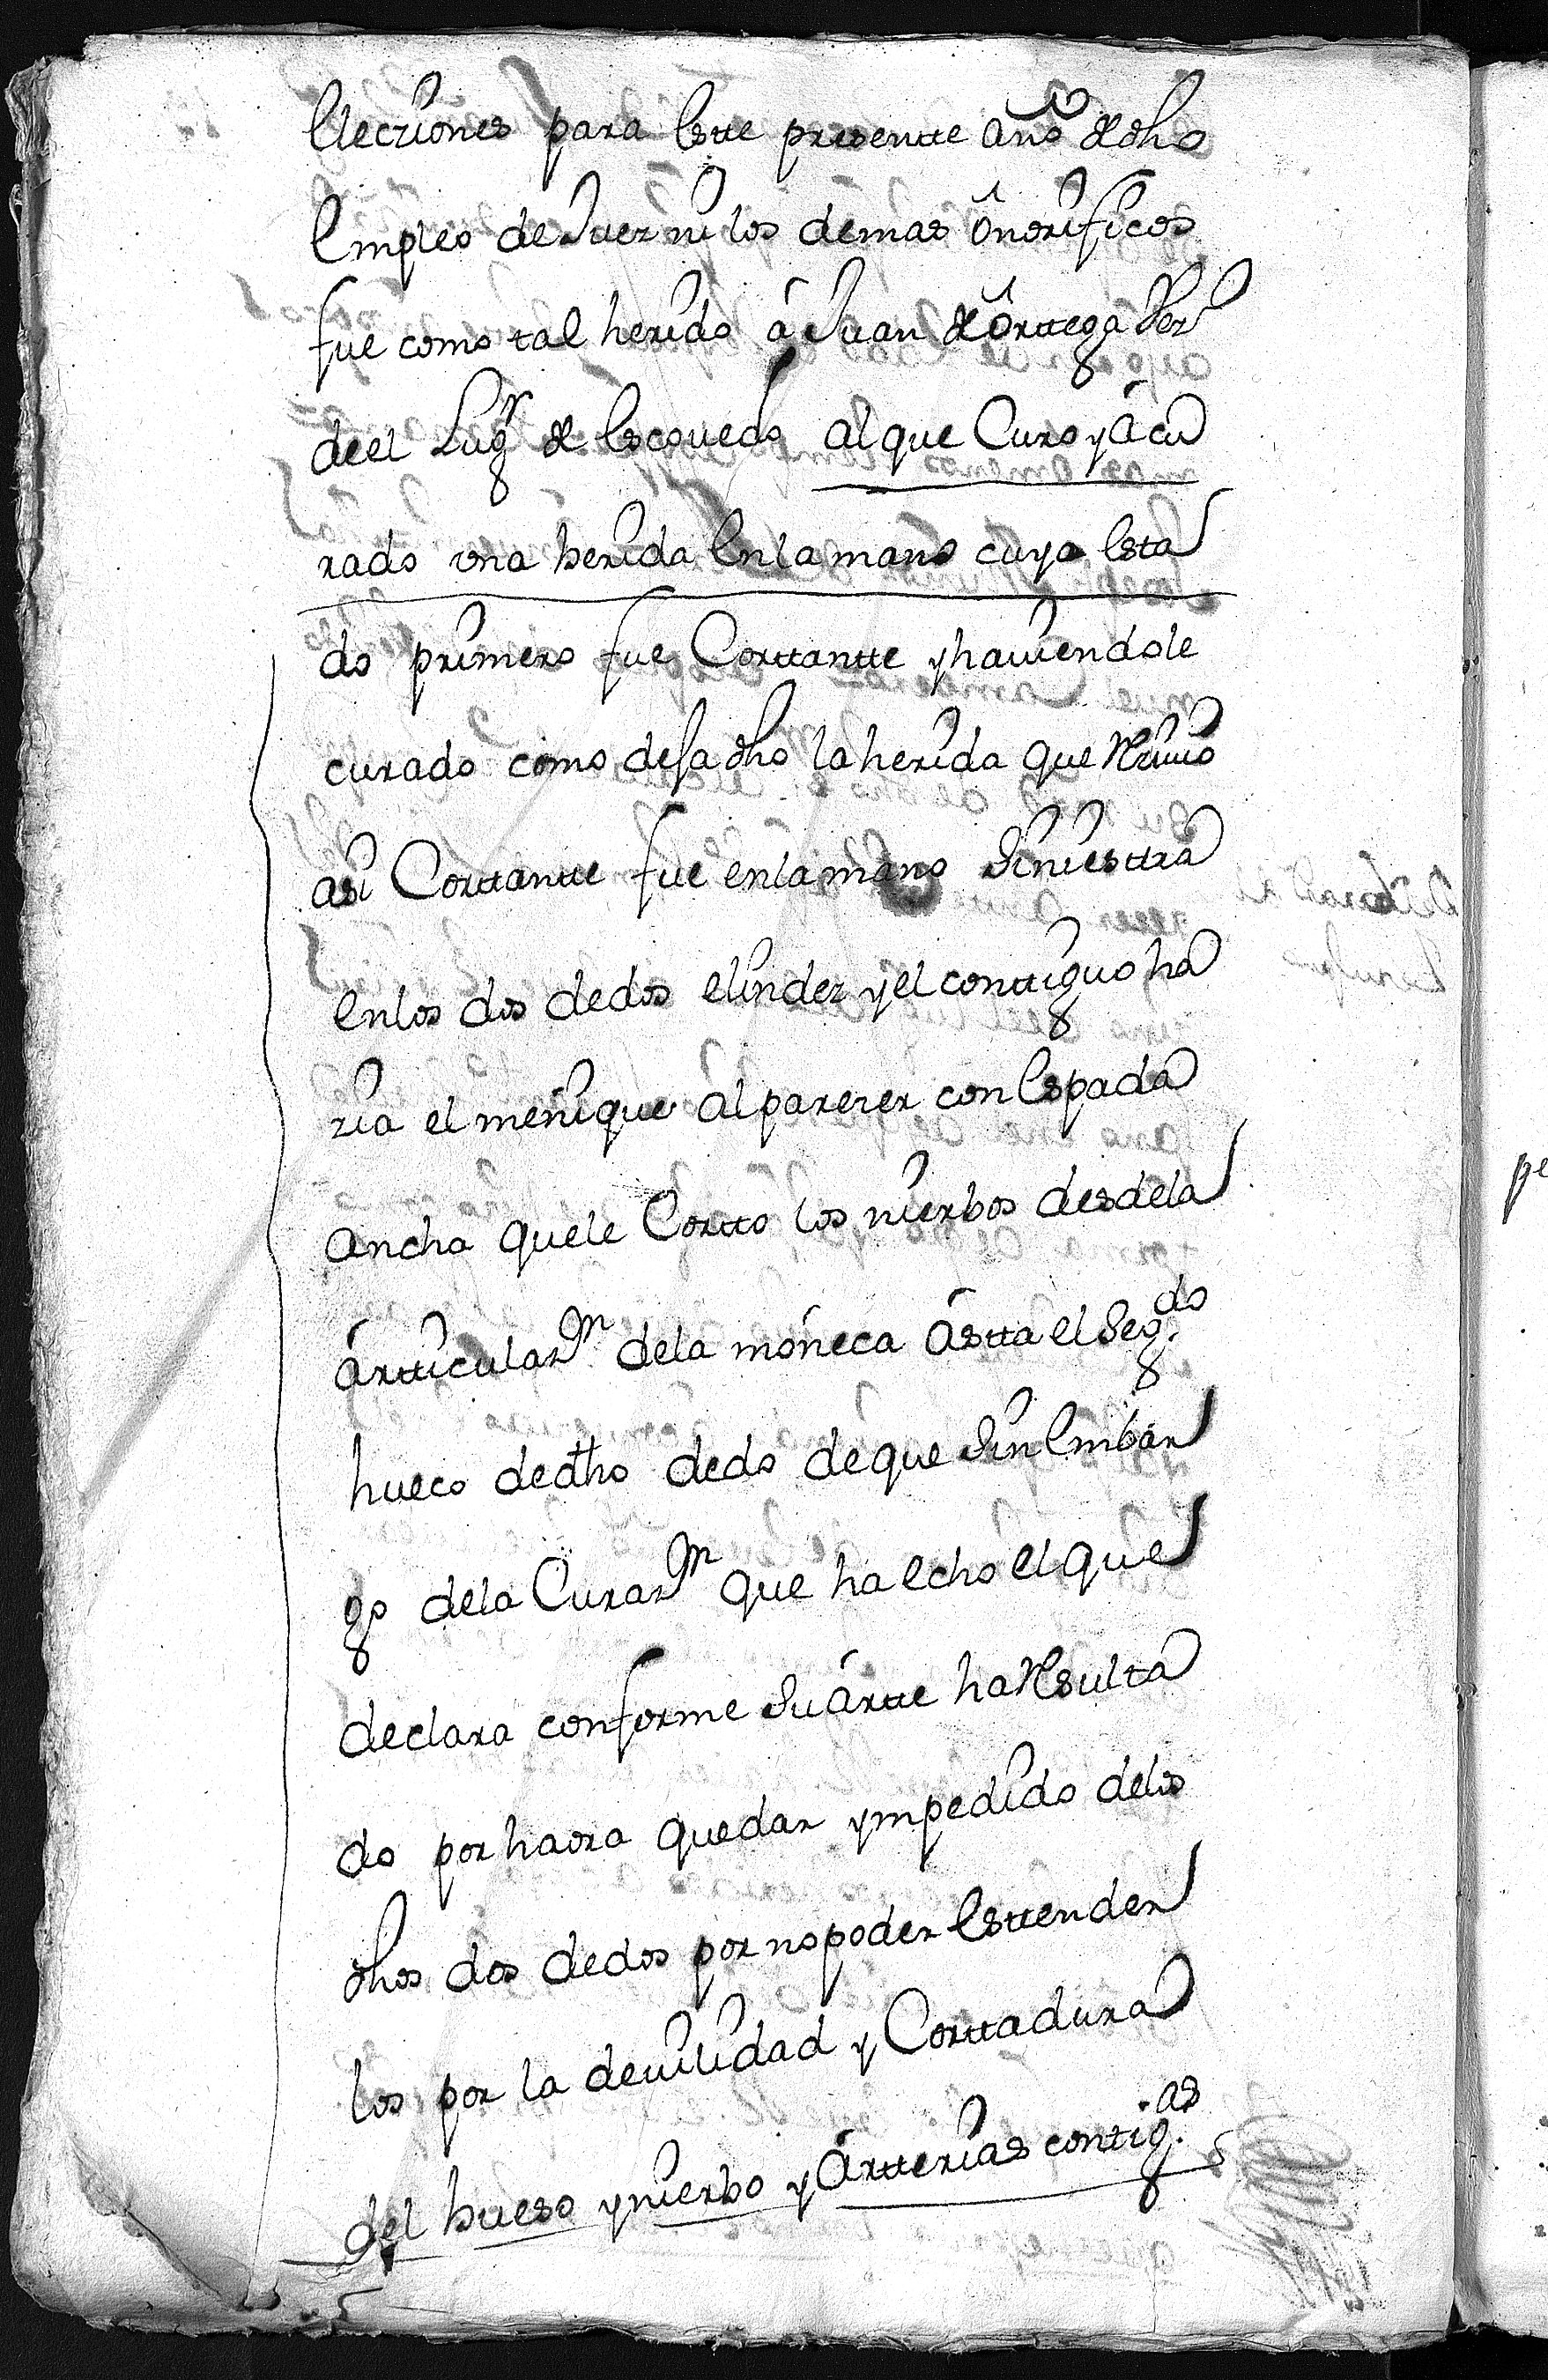 Elecziones para Este presentte año de dho
Empleo de Juez ni los demas Onorificos
fue como tal herido á Juan de Orttega Vezº
deel Lugr de Escouedo al que Curo y ácu
rado vna herida En la mano cuya Esta
do primero fue Corttantte y hauiendole
curado como desa dho la herida que Reziuio
asi Corttantte fue en la mano Siniesttra
En los dos dedos el indez y el conttiguo ha
zia el meñique al parezer con Espada
ancha que le Cortto los nierbos desde la
ártticulazn de la móneca ástta el Seg.do
hueco de dho dedo de que Sin Embar
go de la Curazn que ha Echo el que
declara conforme Su ártte ha Resulta
do por haora quedar ympedido de los
dhos dos dedos por no poder Esttender
los por la deuilidad y Corttadura
del hueso y nierbo y Artterias contig.as